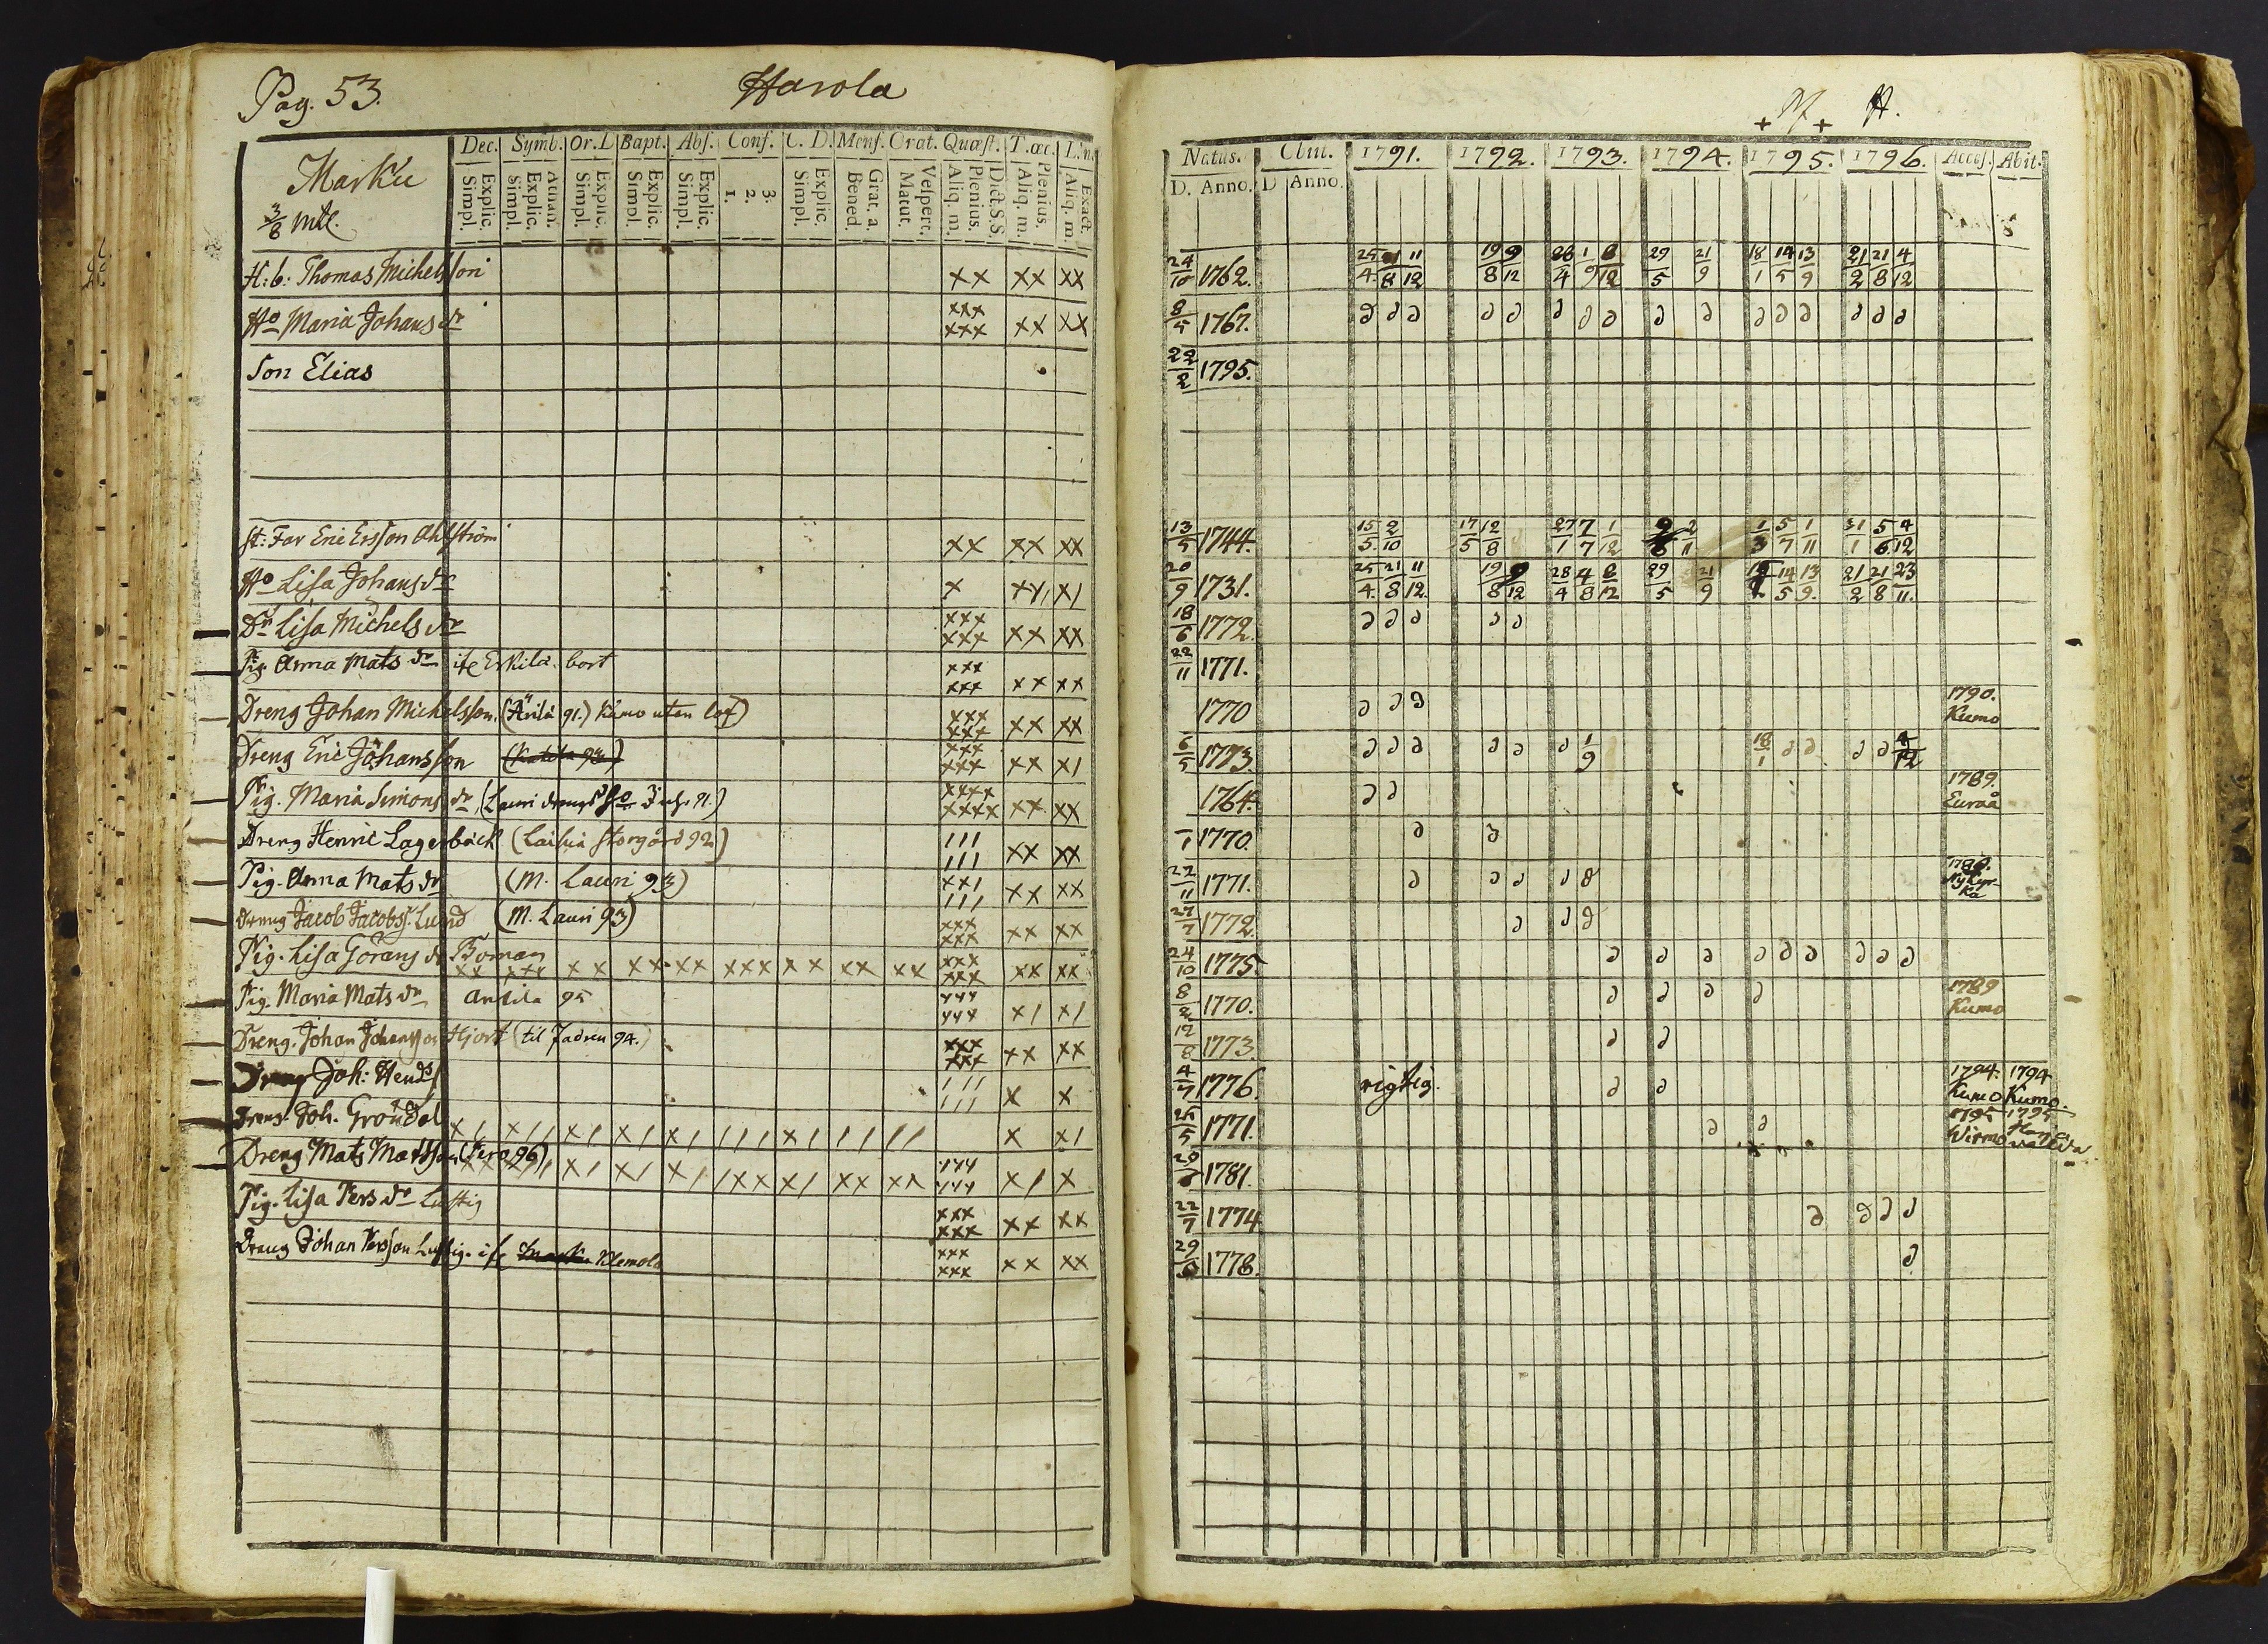 Pag. 53.
Harola
Dec. Symb. Or. D Bapt. Abs. Conf. C. D. Mens. Orat. Quæst. T. œc. Lin.
Marku
3/8 mtl.
Explic. Simpl. Athan. Explic. Simpl. Explic. Simpl. Explic. Simpl. Explic. Simpl. 3. 2. 1. Explic. Simpl. Grat. a. Bened. Vespert. Matut. Dict. S. S. Plenius. Aliq. m. Plenius. Aliq. m. Exact. Aliq. m.
H:b: Thomas Michelsson xx xx xx
Ho Maria Johans dr xxx xxx xx xx
Son Elias
St: Far Eric Ersson Ahlström xx xx xx
Ho Lisa Johans dr x xx/ x/
Dr Lisa Michels dr xxx xxx xx xx
Pig. Anna Mats dr ife Eskila bort xxx xxx xx xx
Dreng Johan Michelsson (Ärilä 91.) Kumo utan lof) xxx xxx xx xx
Dreng Eric Johansson xxx xxx xx x/
Pig. Maria Simons dr (Lauri 91.) xxxx xxxx xx xx
Dreng Henric Lagerbäck (Laihia Storgård 92) /// /// xx xx
Pig. Anna Mats dr (M. Lauri 93) xx/ /// xx xx
Dreng Jacob Jacobss. Lund (M. Lauri 93) xxx xxx xx xx
Pig. Lisa Görans dr Boman xx xxx xx xx xx xxx xx xx xx xxx xxx xx xx
Pig. Maria Mats dr Ankila 95 xxx xxx x/ x/
Dreng. Johan Johansson Hjort (til Fadren 94.) xxx xxx xx xx
Dreng Joh: Hends /// /// x x
Dreng. Joh. Gröndal x/ x// x/ x/ x/ /// x/ // // x x/
Dreng Mats Matsson (Pero 96) xx x// x/ x/ x/ /xx x/ xx xx xxx xxx x/ x
Pig. Lisa Pers dr Lustig xxx xxx xx xx
Dreng Johan Persson Lustig. ife Klemola xxx xxx xx xx
+ M + H.
Natus. Cbni. 1791. 1792. 1793. 1794. 1795. 1796. Acces. Abit.
D. Anno. D Anno.
24/10 1762. 25/4 21/8 11/12 19/8 9/12 28/4 1/9 8/12 29/5 21/9 18/1 14/5 13/9 21/2 21/8 4/12
8/5 1767.
22/2 1795.
13/5 1744. 15/5 2/10 17/5 12/8 27/1 7/7 1/12 2/11 1/3 5/7 1/11 31/1 5/6 4/12
20/9 1731. 25/4 21/8 11/12 19/8 9/12 28/4 4/8 8/12 29/5 21/9 14/5 13/9 21/2 21/8 23/11
18/6 1772.
22/11 1771.
1770 1790. Kumo
6/5 1773. 1/9 18/1 4/12
1764. 1789. Euraå
1770.
22/11 1771. Nykyrka
27/7 1772.
24/10 1775
8/2 1770. 1789 Kumo
12/8 1773.
4/7 1776. rigtig. 1794. Kumo 1794 Kumo.
25/5 1771. 1795 Wirmo 1795
1781.
22/7 1774
29/6 1778.